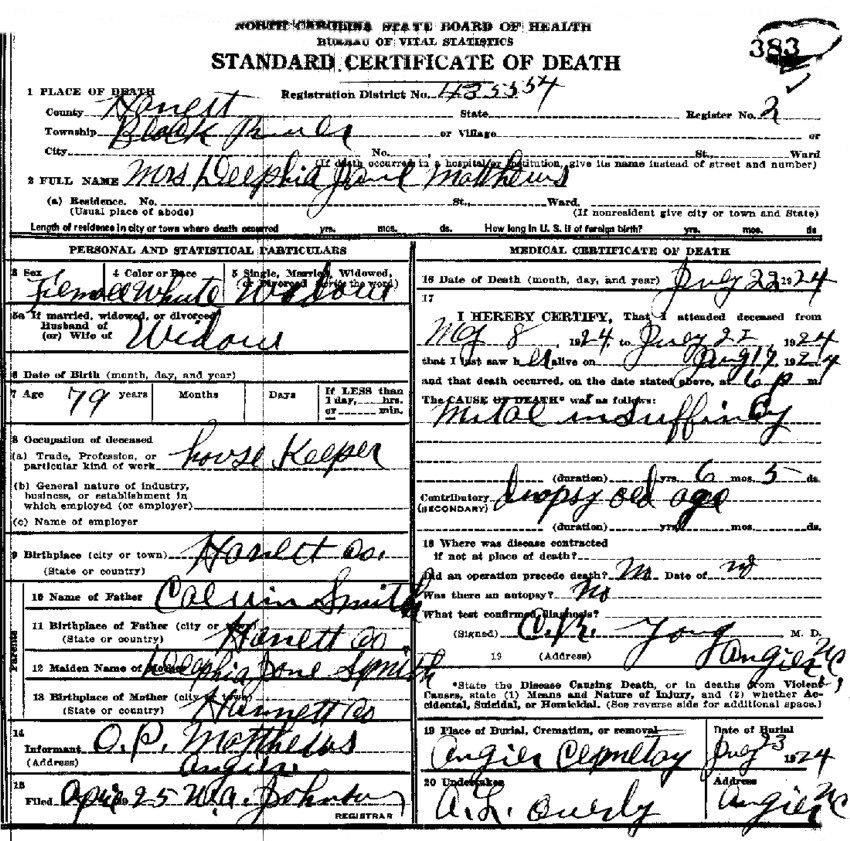 NORTH CAROLINA STATE BOARD OF HEALTH
BUREAU OF VITAL STATISTICS
STANDARD CERTIFICATE OF DEATH
383
1 PLACE OF DEATH
Registration District No.
County Harnett State Register No. 2
Township Black River or Village or
City No. St., Ward
(If death occurred in a hospital or institution, give its name instead of street and number)
2 FULL NAME Mrs Delphia Jane Matthews
(a) Residence. No. St., Ward.
(Usual place of abode) (If nonresident give city or town and State)
Length of residence in city or town where death occurred yrs. mos. ds. How long in U. S. if of foreign birth? yrs. mos. ds
PERSONAL AND STATISTICAL PARTICULARS
3 Sex 4 Color or Race 5 Single, Married, Widowed,
or Divorced (write the word)
Female White Widow
5a If married, widowed, or divorced
Husband of
(or) Wife of Widow
6 Date of Birth (month, day, and year)
7 Age 79 years Months Days If LESS than
1 day, hrs.
or min.
8 Occupation of deceased
(a) Trade, Profession, or
particular kind of work house Keeper
(b) General nature of industry,
business, or establishment in
which employed (or employer)
(c) Name of employer
9 Birthplace (city or town) Hanett Co.
(State or country)
Parents
10 Name of Father Calvin Smith
11 Birthplace of Father (city or town) Hanett Co
(State or country)
12 Maiden Name of Mother Delphia Jane Smith
13 Birthplace of Mother (city or town)
(State or country) Harnett Co
14
Informant O.P. Matthews
(Address) Angier
15
Filed 25 W.A. Johnson
REGISTRAR
MEDICAL CERTIFICATE OF DEATH
16 Date of Death (month, day, and year) July 22 1924
17
I HEREBY CERTIFY, That I attended deceased from
8 1924, to July 22 1924
that I last saw her alive on 19 1924
and that death occurred, on the date stated above, at 6 p m
The CAUSE OF DEATH* was as follows:
Mital insuffincy
(duration) yrs. 6 mos. 5 ds.
Contributory dropsy old age
(SECONDARY)
(duration) yrs. mos. ds.
18 Where was disease contracted
if not at place of death?
Did an operation precede death? No Date of
Was there an autopsy? No
What test confirmed diagnosis?
(Signed) C.R. Yong M. D.
19 (Address) Angier NC
*State the Disease Causing Death, or in deaths from Violent
Causes, state (1) Means and Nature of Injury, and (2) whether Ac-
cidental, Suicidal, or Homicidal. (See reverse side for additional space.)
19 Place of Burial, Cremation, or removal Date of Burial
Angier Cemetay July 23 1924
20 Undertaker Address
A.L. Overby Angier NC